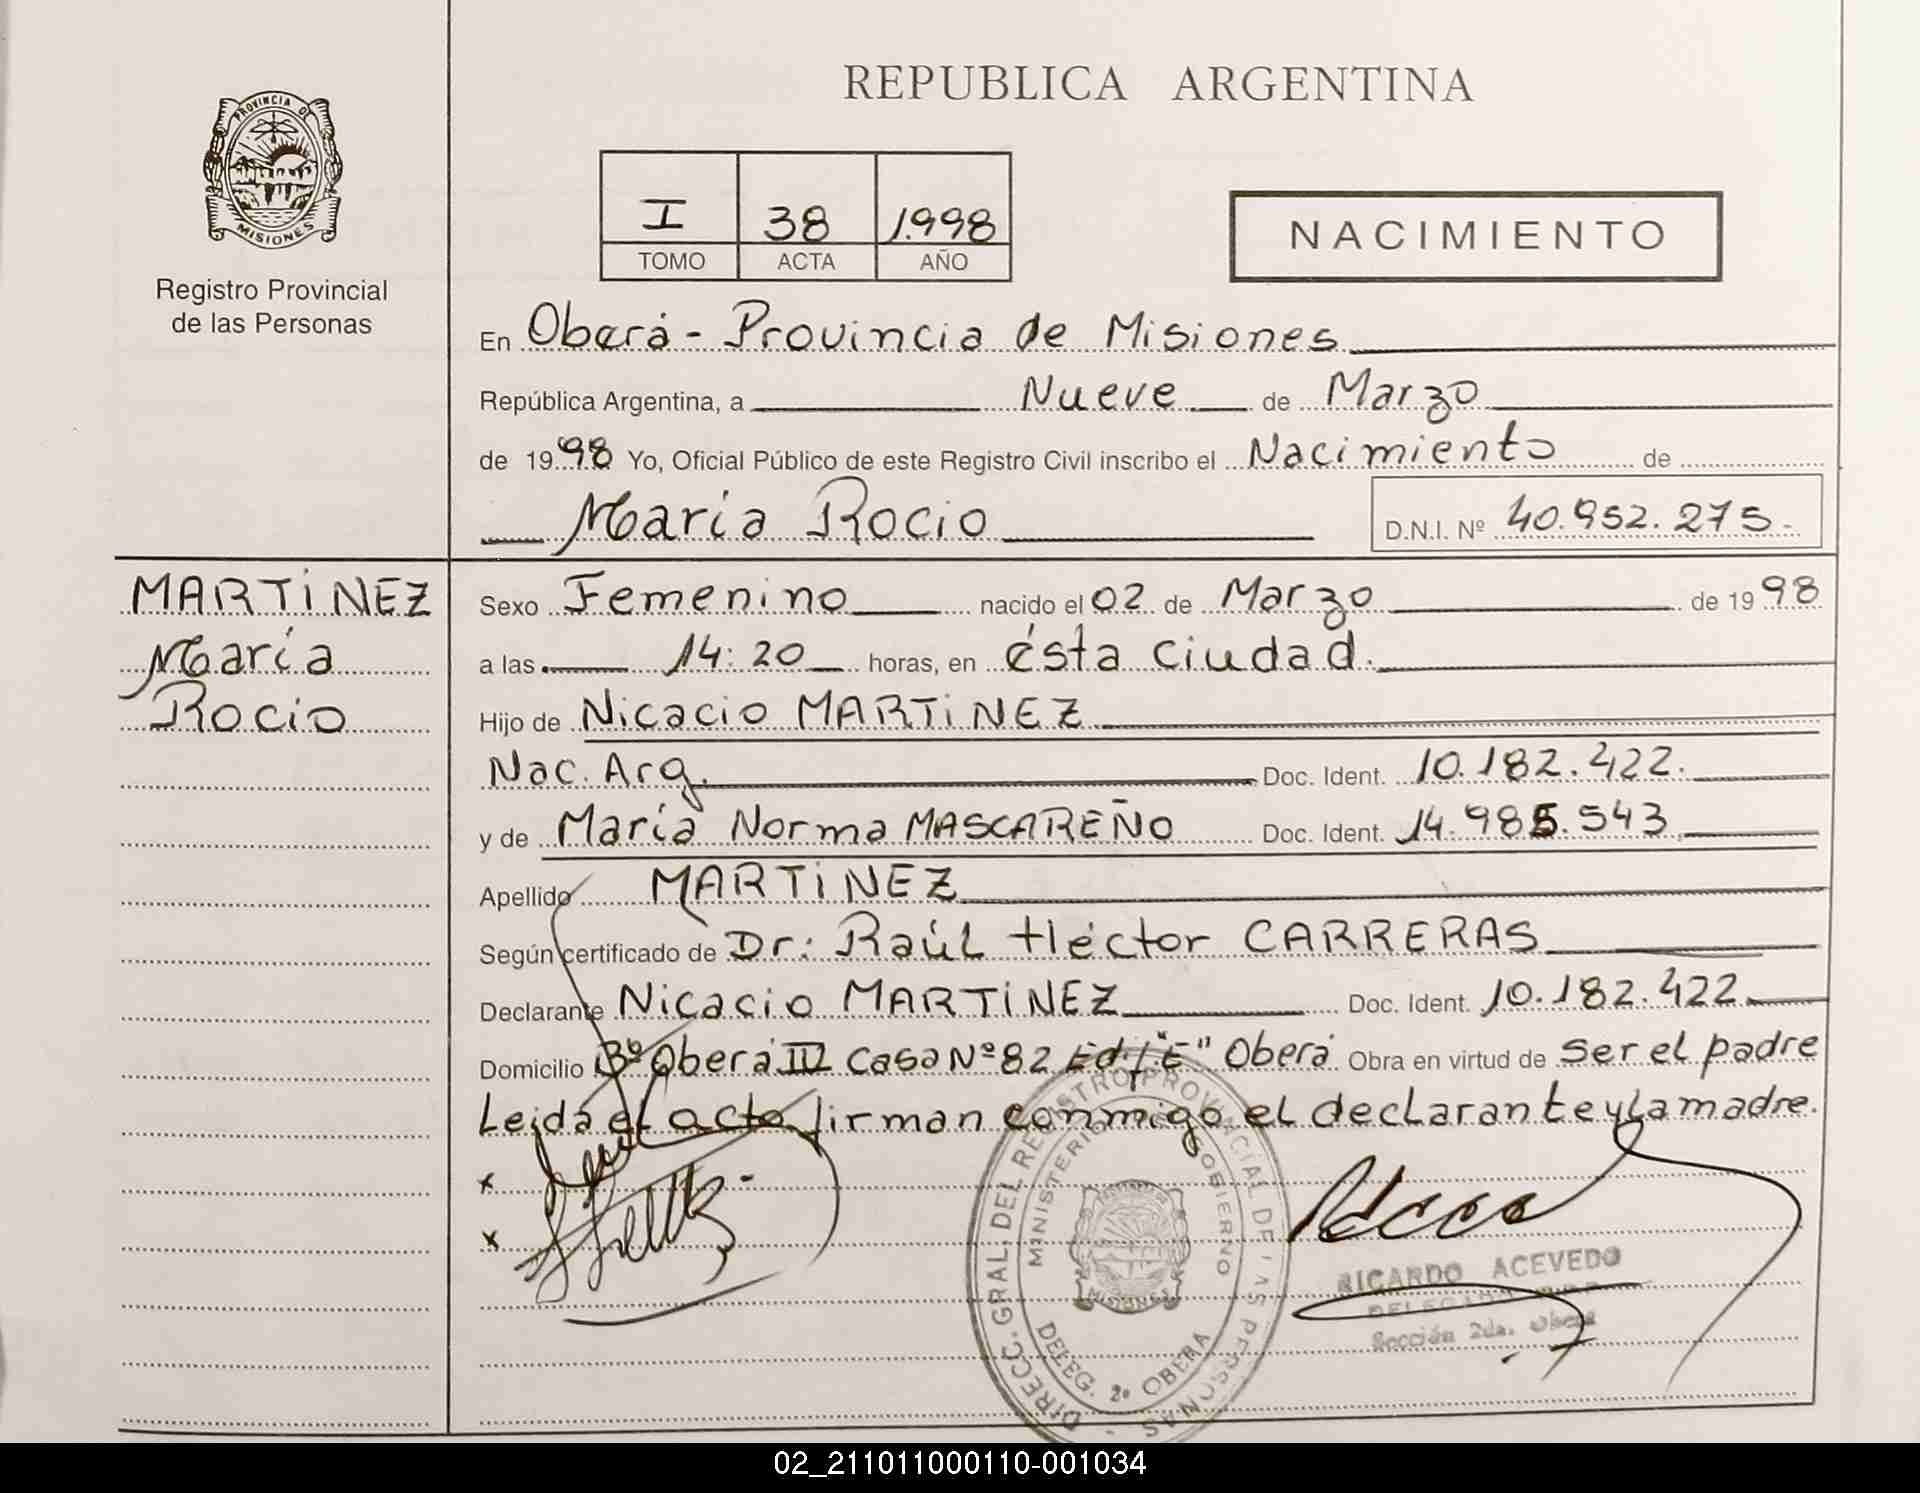 REPUBLICA ARGENTINA
PROVINCIA DE
MISIONES
Registro Provincial
de las Personas
I 38 1.998
TOMO ACTA AÑO
NACIMIENTO
En Oberá - Provincia de Misiones
República Argentina, a Nueve de Marzo
de 1998 Yo, Oficial Público de este Registro Civil inscribo el Nacimiento de
María Rocio D.N.I. Nº 40.952.275.-
MARTINEZ
María
Rocio
Sexo Femenino nacido el 02 de Marzo de 1998
a las 14:20 horas, en ésta ciudad.
Hijo de Nicacio MARTINEZ
Nac. Arg. Doc. Ident. 10.182.422.
y de María Norma MASCAREÑO Doc. Ident. 14.985.543
Apellido MARTINEZ
Según certificado de Dr: Raúl Héctor CARRERAS
Declarante Nicacio MARTINEZ Doc. Ident. 10.182.422
Domicilio Bº Oberá IV Casa Nº 82 Edif "E" Oberá Obra en virtud de ser el padre
Leida el acta firman conmigo el declarante y la madre.
x
x
DIRECC. GRAL. DEL REGISTRO PROVINCIAL DE LAS PERSONAS
MINISTERIO GOBIERNO
MISIONES
DELEG. 2º OBERA
RICARDO ACEVEDO
Sección 2da. Oberá
02_211011000110-001034